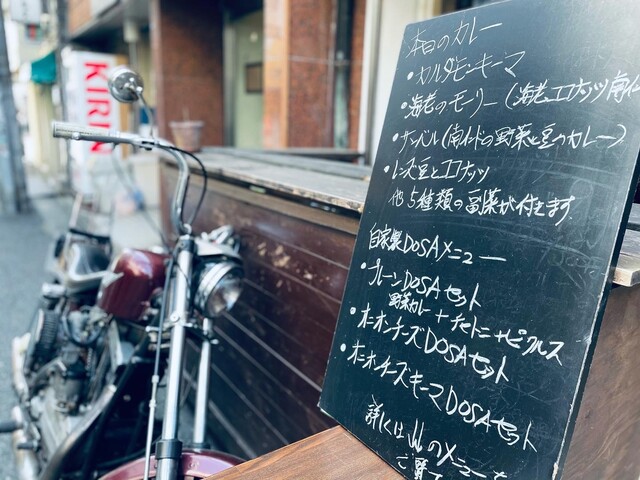 KIRIN
本日のカレー
・カルダモンキーマ
・海老のモーリー(海老、ココナッツ、南イン
・サンバル(南インドの野菜と豆のカレー)
・レンズ豆とココナッツ
他5種類の副菜が付きます
自家製DOSAメニュー
・プレーンDOSAセット
野菜カレー+チャトニ+ピクルス
・オニオンチーズDOSAセット
・オニオンチーズキーマDOSAセット
詳しくは のメニュー
ご覧